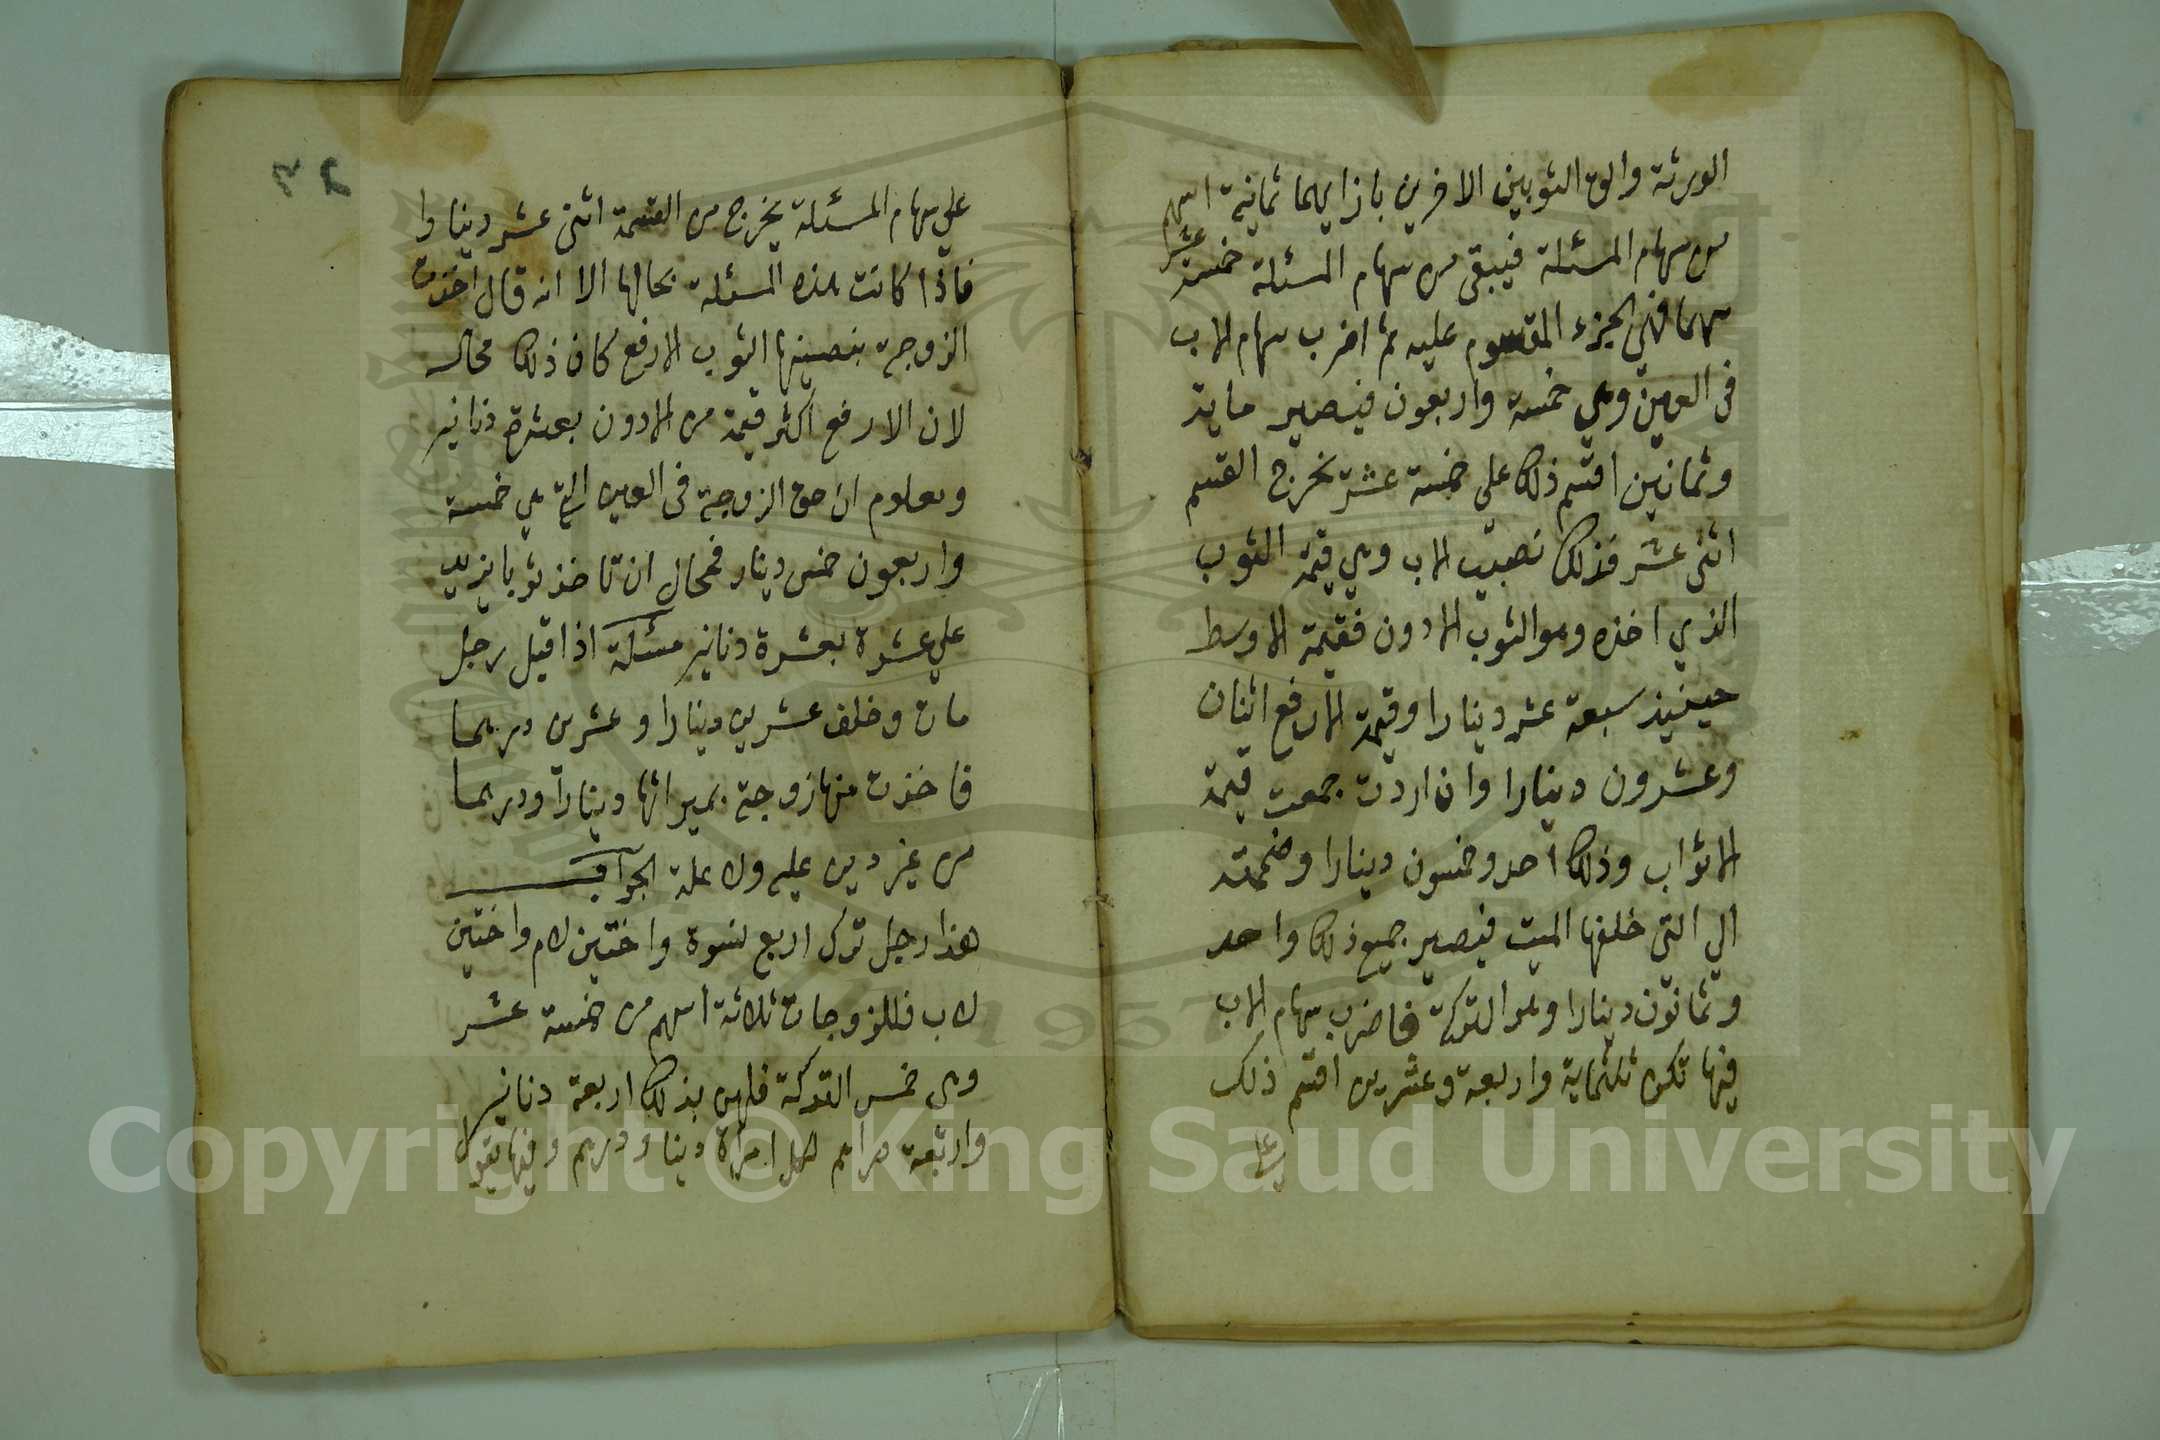 الورثة والق الثوبين الاخرين بازايهما ثمانية اسهم
من سهام المسئلة فيبقى من سهام المسئلة خمسة عشر
سهما فهي الجزء المقسوم عليه ثم اضرب سهام الاب
في العين وهي خمسة واربعون فيصير ماية
وثمانين اقسم ذلك على خمسة عشر تخرج القسم
اثنى عشر فذلك نصيب الاب وهي قيمة الثوب
الذي اخذه وهو الثوب الادون فقيمة الاوسط
حينيذ سبعة عشر دينارا وقيمة الارفع اثنان
وعشرون دينارا وان اردت جمعت قيمة
الاثواب وذلك احد وخمسون دينارا وضممته
الي التي خلفها الميت فيصير جميع ذلك واحد
وثمانون دينارا وهو التركة فاضرب سهام الاب
فيها تكون ثلثماية واربعة وعشرين اقسم ذلك
على
٢٦
علي سهام المسئلة يخرج من القسمة اثنى عشر دينارا
فاذا كانت هذه المسئلة بحالها الا انه قال اخذت
الزوجة بنصيبها الثوب الارفع كان ذلك محال
لان الارفع اكثر قيمة من الادون بعشرة دنانير
ومعلوم ان حق الزوجة في العين التي هي خمسة
واربعون خمس دينار فمحال ان تاخذ ثوبا يزيد
علي عشرة بعشرة دنانير مسئلة اذا قيل رجل
مات وخلف عشرين دينارا وعشرين درهما
فاخذت منها زوجة بميراثها دينارا ودرهما
من غير دين عليه ولا علة الجواب
هذا رجل ترك اربع نسوة واختين لام واختين
لاب فللزوجات ثلاثة اسهم من خمسة عشر
وهي خمس التركة فلهن بذلك اربعة دنانير
واربعة دراهم لكل امراة دينار ودرهم وفيها يقول
Copyright © King Saud University
1957